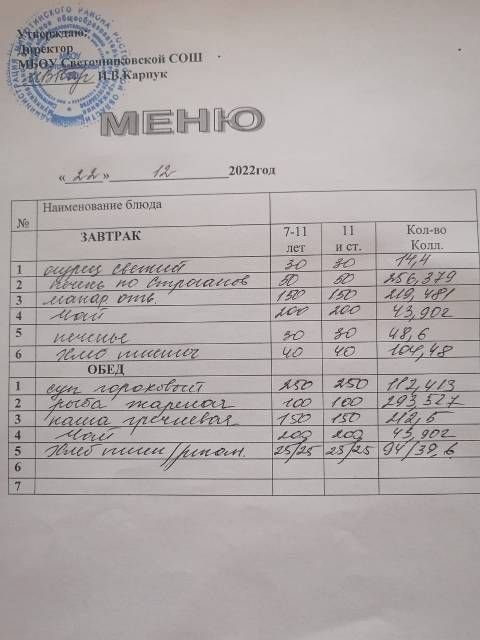 Утверждаю:
Директор
МБОУ Светочниковской СОШ
И.В.Карпук
МЕНЮ
«22» 12 2022год
№ Наименование блюда
ЗАВТРАК 7-11 лет 11 и ст. Кол-во Колл.
1 огурец свежий 30 30 14,4
2 печень по строганов 50 50 256,379
3 макар. отв. 150 150 219,481
4 чай 200 200 43,902
5 печенье 30 30 48,6
6 хлеб пшенич 40 40 104,48
ОБЕД
1 суп гороховый 250 250 112,413
2 рыба жареная 100 100 293,327
3 каша гречневая 150 150 212,5
4 чай 200 200 43,902
5 хлеб пшен/ржан. 25/25 25/25 94/39,6
6
7